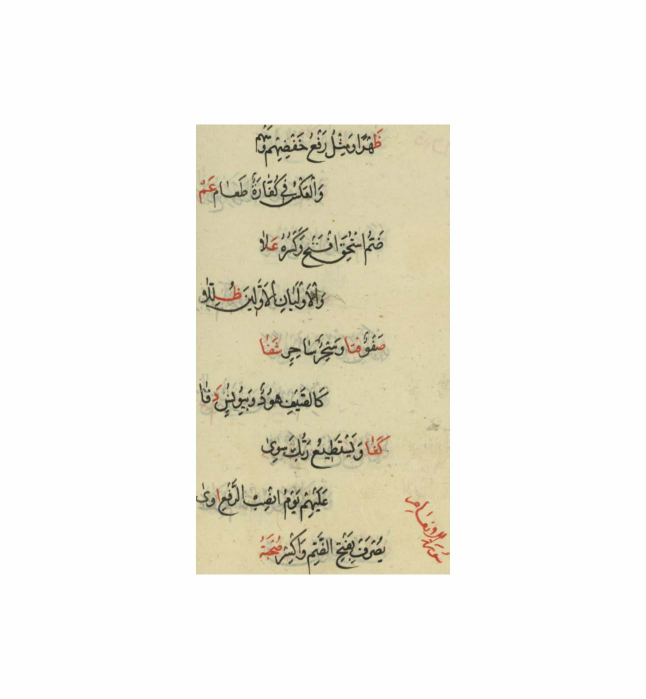 ظَهْرًا وَمِثْلُ رَفْعُ خَفْضِهِمْ وَسَمْ
وَالْعَكْسُ فِي كَفَّارَةُ طَعَامِ عَمْ
ضَمُّ اسْتُحِقَّ افْتَحْ وَكَسْرُهُ عَلَا
وَالْأَوْلَيَانِ الْأَوَّلِينَ ظُلِّلَا
صَفْوُ فَتًا وَسِحْرُ سَاحِرٍ شَفَا
كَالصَّفِّ هُودٌ وَبِيُونُسٍ دَفَا
كَفَا وَيَسْتَطِيعُ رَبُّكَ سِوِى
عَلَيْهِمْ يَوْمُ انْصِبِ الرَّفْعَ اوَى
سورة الانعام
يُصْرَفْ بِفَتْحِ الضَّمِّ وَاكْسِرْ صُحْبَةُ